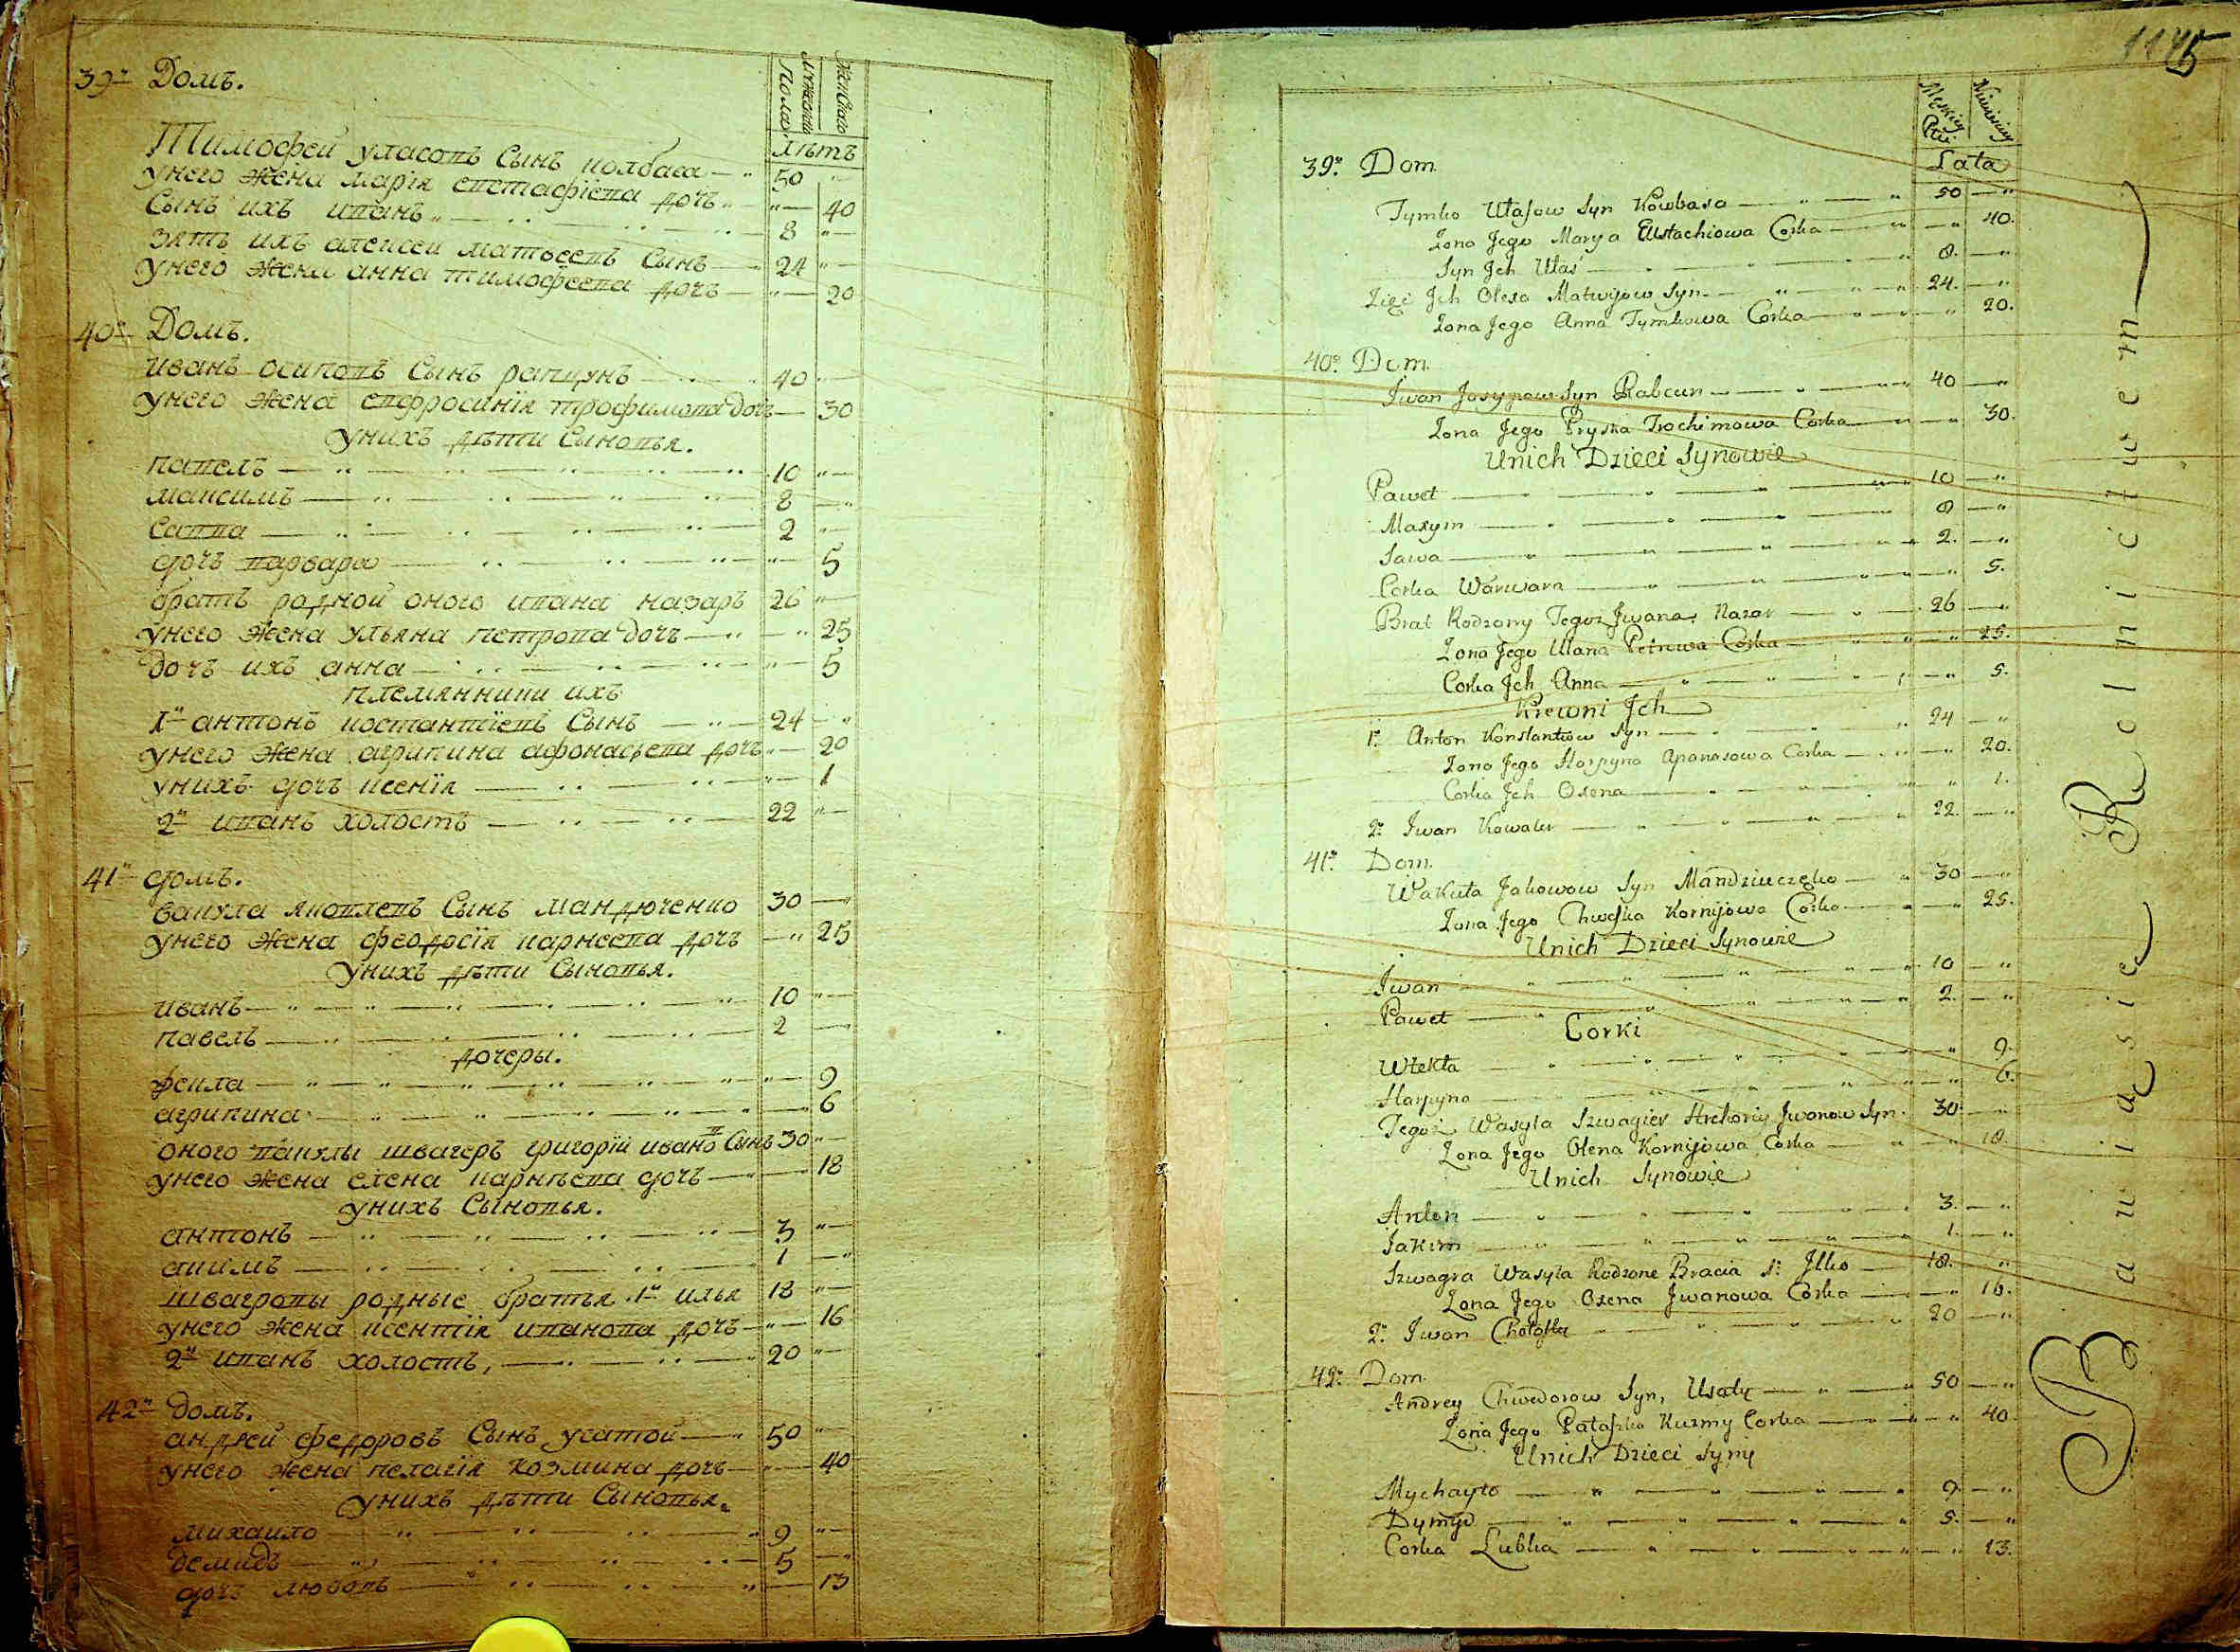 39й Домъ.
мужеска Пола
женскаго
лѣтъ
Тимофей уласовъ Сынъ колбаса 50
унего жена марія евстафіева дочь 40
Сынъ ихъ иванъ 8
зять ихъ алексей матвеевъ Сынъ 24
унего жена анна тимофеева дочь 20
40й Домъ.
иванъ осиповъ Сынъ рапцунъ 40
унего жена евфросинія трофимова дочь 30
унихъ дѣти Сыновья.
павелъ 10
максимъ 8
Савва 2
дочь варвара 5
братъ родной оного ивана назаръ 26
унего жена ульяна петрова дочь 25
дочь ихъ анна 5
племянники ихъ
1й антонъ костантіевъ Сынъ 24
унего жена агрипина афонасьева дочь 20
унихъ дочь ксенія 1
2й иванъ холостъ 22
41й домъ.
вакула яковлевъ Сынъ мандюченко 30
унего жена феодосія карнеева дочь 25
унихъ дѣти Сыновья.
иванъ 10
павелъ 2
дочеры.
фекла 9
агрипина 6
оного вакулы швагеръ григорій ивановъ Сынъ 30
унего жена елена карнѣева дочь 18
унихъ Сыновья.
антонъ 3
акимъ 1
швагровы родные братья 1й илья 18
унего жена ксентія иванова дочь 16
2й иванъ холостъ, 20
42й домъ.
андрей федоровъ Сынъ усатой 50
унего жена пелагія козмина дочь 40
унихъ дѣти Сыновья.
михаило 9
демидъ 5
дочь любовь 13
1145
Męskiej Płci
Niewieściej
Lata
39o. Dom.
Tymko Ułasow Syn Kowbasa 50
Żona Jego Marya Eustachiowa Corka 40.
Syn Jch Ułaś 8.
Zięć Jch Olexa Matwijow Syn 24.
Żona Jego Anna Tymkowa Corka 20.
40o. Dom.
Jwan Josypow Syn Rabcun 40
Żona Jego Pryska Trochimowa Corka 30.
Unich Dzieci Synowie
Paweł 10
Maxym 8
Sawa 2.
Corka Warwara 5.
Brat Rodzony Tegoż Jwana, Nazar 26
Żona Jego Ulana Petrowa Corka 25.
Corka Jch Anna 5.
Krewni Jch
1o. Anton Konstantiow Syn 24
Żona Jego Horpyna Apanasowa Corka 20.
Corka Jch Oxena 1.
2o. Jwan Kowaler 22.
41o. Dom.
Wakuła Jakowow Syn Mandziuczęko 30
Żona Jego Chweśka Kornijowa Corka 25.
Unich Dzieci Synowie
Jwan 10
Paweł 2.
Corki
Wtekla 9.
Harpyna 6.
Tegoż Wasyla Szwagier Hrehoriy Jwanow Syn 30
Żona Jego Ołena Kornijowa Corka 18.
Unich Synowie
Anton 3.
Jakim 1.
Szwagra Wasyla Rodzone Bracia 1o. Jlko 18.
Żona Jego Oxena Jwanowa Corka 16.
2o. Jwan 20
42o. Dom.
Andrey Chwedorow Syn, Usaty 50
Żona Jego Pałaszka Kuzmy Corka 40.
Unich Dzieci Syny
Mychayło 9.
Dymyd 5.
Corka Lubka 13.
Bawiąsie Rolnictwem